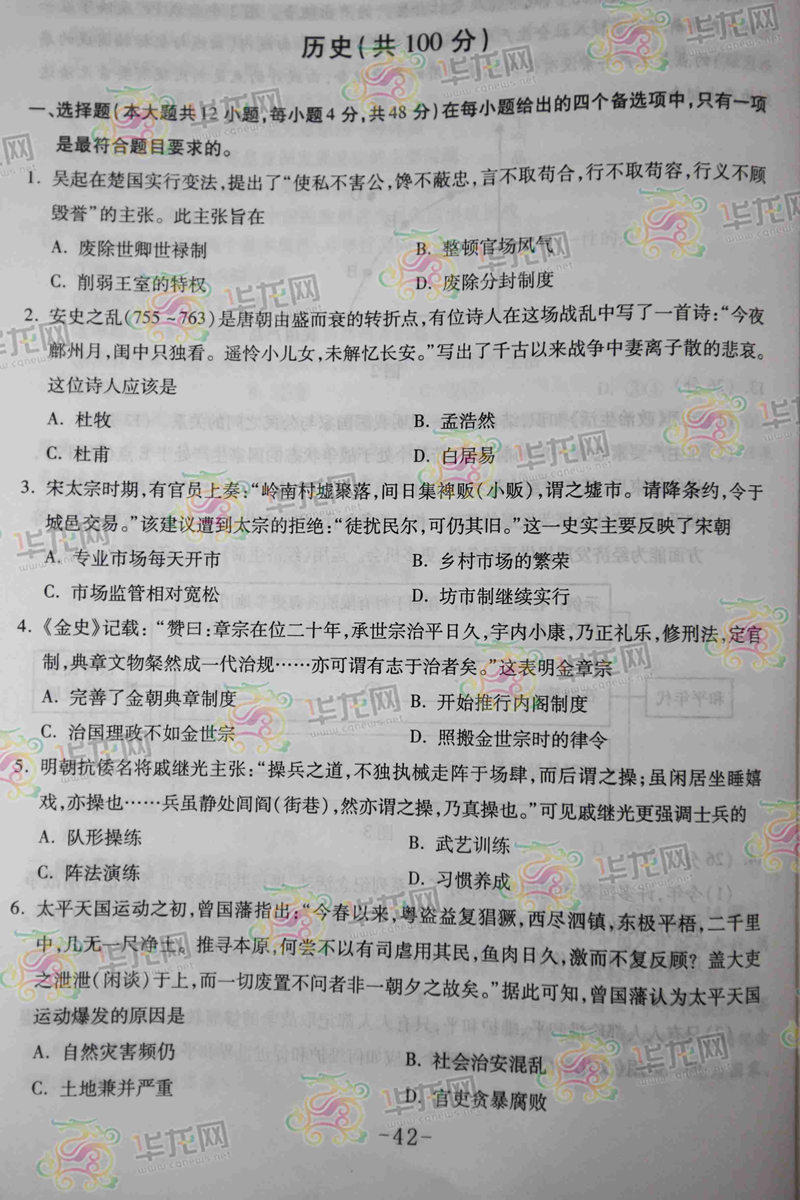 历史(共100分)
一、选择题(本大题共12小题,每小题4分,共48分)在每小题给出的四个备选项中,只有一项
是最符合题目要求的。
1. 吴起在楚国实行变法,提出了“使私不害公,馋不蔽忠,言不取苟合,行不取苟容,行义不顾
毁誉”的主张。此主张旨在
A. 废除世卿世禄制 B. 整顿官场风气
C. 削弱王室的特权 D. 废除分封制度
2. 安史之乱(755~763)是唐朝由盛而衰的转折点,有位诗人在这场战乱中写了一首诗:“今夜
鄜州月,闺中只独看。遥怜小儿女,未解忆长安。”写出了千古以来战争中妻离子散的悲哀。
这位诗人应该是
A. 杜牧 B. 孟浩然
C. 杜甫 D. 白居易
3. 宋太宗时期,有官员上奏:“岭南村墟聚落,间日集裨贩(小贩),谓之墟市。请降条约,令于
城邑交易。”该建议遭到太宗的拒绝:“徒扰民尔,可仍其旧。”这一史实主要反映了宋朝
A. 专业市场每天开市 B. 乡村市场的繁荣
C. 市场监管相对宽松 D. 坊市制继续实行
4. 《金史》记载:“赞曰:章宗在位二十年,承世宗治平日久,宇内小康,乃正礼乐,修刑法,定官
制,典章文物粲然成一代治规……亦可谓有志于治者矣。”这表明金章宗
A. 完善了金朝典章制度 B. 开始推行内阁制度
C. 治国理政不如金世宗 D. 照搬金世宗时的律令
5. 明朝抗倭名将戚继光主张:“操兵之道,不独执械走阵于场肆,而后谓之操;虽闲居坐睡嬉
戏,亦操也……兵虽静处闾阎(街巷),然亦谓之操,乃真操也。”可见戚继光更强调士兵的
A. 队形操练 B. 武艺训练
C. 阵法演练 D. 习惯养成
6. 太平天国运动之初,曾国藩指出:“今春以来,粤盗益复猖獗,西尽泗镇,东极平梧,二千里
中,几无一尺净土。推寻本原,何尝不以有司虐用其民,鱼肉日久,激而不复反顾？盖大吏
之泄泄(闲谈)于上,而一切废置不问者非一朝夕之故矣。”据此可知,曾国藩认为太平天国
运动爆发的原因是
A. 自然灾害频仍 B. 社会治安混乱
C. 土地兼并严重 D. 官吏贪暴腐败
-42-